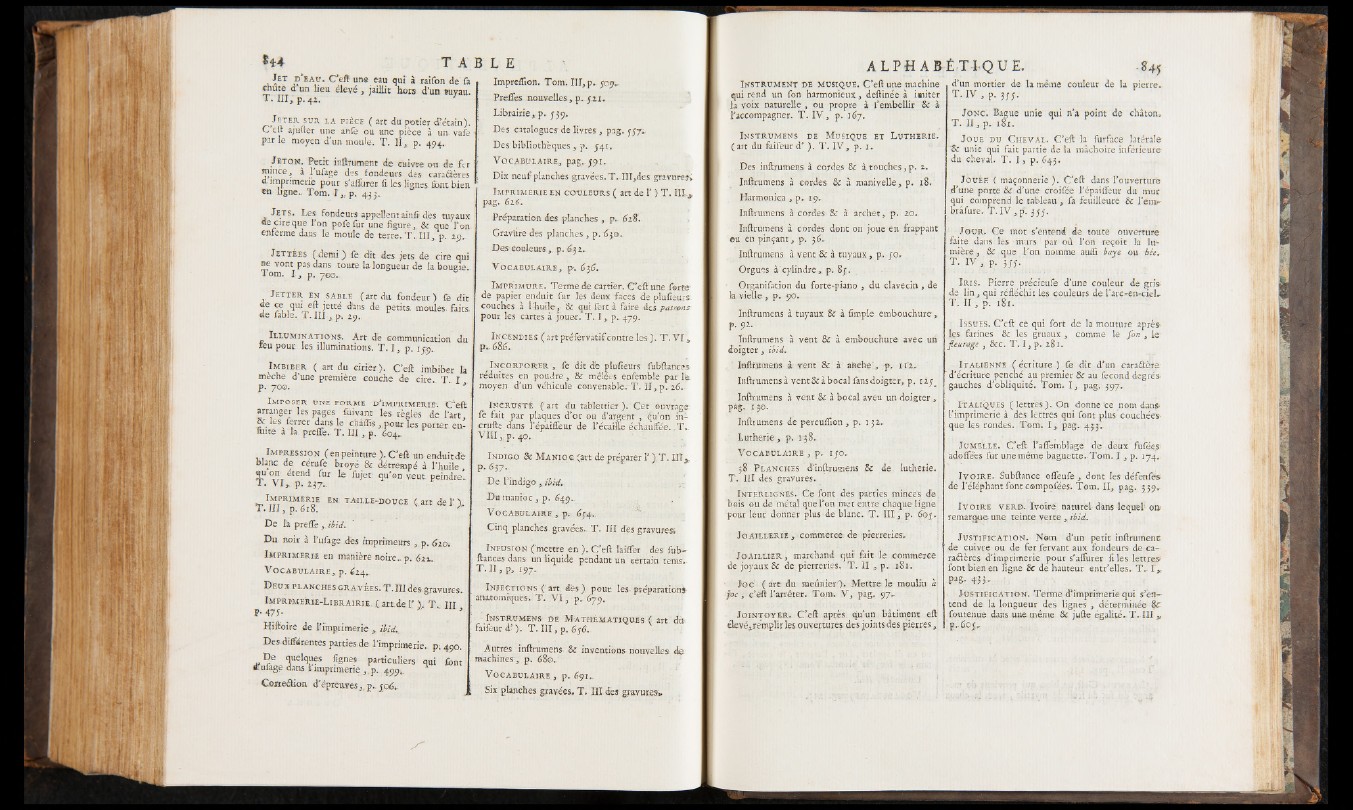 844 TABLE
JET D'EAU. C'eſt une eau qui à raiſon de ſa
chûte d'un lieu élevé, jaillit hors d'un tuyau.
T. III, p. 42.
JETER SUR LA PIÈCE (art du potier d'étain).
C'eſt ajuſter une anſe ou une pièce à un vaſe
par le moyen d'un moule. T. II, p. 494.
JETON. Petit inſtrument de cuivre ou de fer
mince, à l'uſage des fondeurs des caractères
d'imprimerie pour s'aſſurer ſi les lignes ſont bien
en ligne. Tom. I, p. 433.
JETS. Les fondeurs appellent ainſi des tuyaux
de cire que l'on poſe ſur une figure, & que l'on
enferme dans le moule de terre. T. III, p. 29.
JETTÉES (demi) ſe dit des jets de cire qui
ne vont pas dans toute la longueur de la bougie.
Tom. I, p. 700.
JETTER EN SABLE (art du fondeur) ſe dit
de ce qui eſt jetté dans de petits moules faits
de ſable. T. III, p. 29.
ILLUMINATIONS. Art de communication du
feu pour les illuminations. T. I, p. 159.
IMBIBER (art du cirier). C'eſt imbiber la
mèche d'une première couche de cire. T. I,
p. 700.
IMPOSER UNE FORME D'IMPRIMERIE. C'eſt
arranger les pages ſuivant les règles de l'art,
& les ſerrer dans le chaſſis, pour les porter en-
ſuite à la preſſe. T. III, p. 604.
IMPRESSION (en peinture). C'eſt un enduit de
blanc de céruſe broyé & détrempé à l'huile,
qu'on étend ſur le ſujet qu'on veut peindre.
T. VI, p. 247.
IMPRIMERIE EN TAILLE-DOUCE (art de l').
T. III, p. 618.
De la preſſe, ibid.
Du noir à l'uſage des imprimeurs, p. 620.
IMPRIMERIE en manière noire, p. 622.
VOCABULAIRE, p. 624.
DEUX PLANCHES GRAVÉES. T. III des gravures.
IMPRIMERIE-LIBRAIRIE (art de l'). T. III,
p. 475.
Hiſtoire de l'imprimerie, ibid.
Des différentes parties de l'imprimerie, p. 490.
De quelques ſignes particuliers qui ſont
d'uſage dans l'imprimerie, p. 499.
Correction d'épreuves, p. 506.
Impreſſion. Tom. III, p. 509.
Preſſes nouvelles, p. 521.
Librairie, p. 539.
Des catalogues de livres, pag. 557.
Des bibliothèques, p. 541.
VOCABULAIRE, pag. 591.
Dix neuf planches gravées. T. III, des gravures.
IMPRIMERIE EN COULEURS (art de l') T. III,
pag. 626.
Préparation des planches, p. 628.
Gravûre des planches, p. 630.
Des couleurs, p. 632.
VOCABULAIRE, p. 636.
IMPRIMURE. Terme de cartier. C'eſt une forte
de papier enduit ſur les deux faces de pluſieurs
couches à l'huile, & qui ſert à faire des patrons
pour les cartes à jouer. T. I, p. 479.
INCENDIES (art préſervatif contre les). T. VI,
p. 686.
INCORPORER, ſe dit de pluſieurs ſubſtances
réduites en poudre, & mêlées enſemble par le
moyen d'un véhicule convenable. T. II, p. 26.
INCRUSTÉ (art du tablettier). Cet ouvrage
ſe fait par plaques d'or ou d'argent, qu'on in-
cruſte dans l'épaiſſeur de l'écaille échauffée. T.
VIII, p. 40.
INDIGO & MANIOC (art de préparer l') T. III,
p. 637.
De l'indigo, ibid.
Du manioc, p. 649.
VOCABULAIRE, p. 654.
Cinq planches gravées. T. III des gravures.
INFUSION (mettre en). C'eſt laiſſer des ſub-
ſtances dans un liquide pendant un certain tems.
T. II, p. 197.
INJECTIONS (art des) pour les préparations
anatomiques. T. VI, p. 679.
INSTRUMENS DE MATHEMATIQUES (art du
faiſeur d'). T. III, p. 656.
Autres inſtrumens & inventions nouvelles de
machines, p. 680.
VOCABULAIRE, p. 691.
Six planches gravées. T. III des gravures.
ALPHABÉTIQUE. 845
INSTRUMENT DE MUSIQUE. C'eſt une machine
qui rend un ſon harmonieux, deſtinée à imiter
la voix naturelle, ou propre à l'embellir & à
l'accompagner. T. IV, p. 167.
INSTRUMENS DE MUSIQUE ET LUTHERIE.
(art du faiſeur d'). T. IV, p. 1.
Des inſtrumens à cordes & à touches, p. 2.
Inſtrumens à cordes & à manivelle, p. 18.
Harmonica, p. 19.
Inſtrumens à cordes & à archet, p. 20.
Inſtrumens à cordes dont on joue en frappant
ou en pinçant, p. 36.
Inſtrumens à vent & à tuyaux, p. 50.
Orgues à cylindre, p. 85.
Organiſation du forte-piano, du clavecin, de
la vielle, p. 90.
Inſtrumens à tuyaux & à ſimple embouchure,
p. 92.
Inſtrumens à vent & à embouchure avec un
doigter, ibid.
Inſtrumens à vent & à anche, p. 112.
Inſtrumens à vent & à bocal ſans doigter, p. 125
Inſtrumens à vent & à bocal avec un doigter,
pag. 130.
Inſtrumens de percuſſion, p. 132.
Lutherie, p. 138.
VOCABULAIRE, p. 150.
38 PLANCHES d'inſtrumens & de lutherie.
T. III des gravures.
INTERLIGNES. Ce ſont des parties minces de
bois ou de métal que l'on met entre chaque ligne
pour leur donner plus de blanc. T. III, p. 605.
JOAILLERIE, commerce de pierreries.
JOAILLIER, marchand qui fait le commerce
de joyaux & de pierreries. T. II, p. 181.
JOC (art du meûnier). Mettre le moulin à
joc, c'eſt l'arrêter. Tom. V, pag. 97.
JOINTOYER. C'eſt après qu'un bâtiment eſt
élevé, remplir les ouvertures des joints des pierres,
d'un mortier de la même couleur de la pierre.
T. IV, p. 355.
JONC. Bague unie qui n'a point de châton.
T. II, p. 181.
JOUE DU CHEVAL. C'eſt la ſurface latérale
& unie qui fait partie de la mâchoire inférieure
du cheval. T. I, p. 643.
JOUÉE (maçonnerie). C'eſt dans l'ouverture
d'une porte & d'une croiſée l'épaiſſeur du mur
qui comprend le tableau, ſa feuilleure & l'em-
brâſure. T. IV, p. 355.
JOUR. Ce mot s'entend de toute ouverture
faite dans les murs par où l'on reçoit la lu-
mière, & que l'on nomme auſſi baye ou bée.
T. IV, p. 355.
IRIS. Pierre précieuſe d'une couleur de gris
de lin, qui réfléchit les couleurs de l'arc-en-ciel.
T. II, p. 181.
ISSUES. C'eſt ce qui ſort de la mouture après
les farines & les gruaux, comme le ſon, le
fleurage, &c. T. I, p. 281.
ITALIENNE (écriture) ſe dit d'un caractère
d'écriture penché au premier & au ſecond degrés
gauches d'obliquité. Tom. I, pag. 397.
ITALIQUES (lettres). On donne ce nom dans
l'imprimerie à des lettres qui ſont plus couchées
que les rondes. Tom. I, pag. 433.
JUMELLE. C'eſt l'aſſemblage de deux fuſées
adoſſées ſur une même baguette. Tom. I, p. 174.
IVOIRE. Subſtance oſſeuſe, dont les défenſes
de l'éléphant ſont compoſées. Tom. II, pag. 339.
IVOIRE VERD. Ivoire naturel dans lequel on
remarque une teinte verte, ibid.
JUSTIFICATION. Nom d'un petit inſtrument
de cuivre ou de fer ſervant aux fondeurs de ca-
ractères d'imprimerie pour s'aſſurer ſi les lettres
ſont bien en ligne & de hauteur entr'elles. T. I,
pag. 433.
JUSTIFICATION. Terme d'imprimerie qui s'en-
tend de la longueur des lignes, déterminée &
ſoutenue dans une même & juſte égalité. T. III,
p. 605.